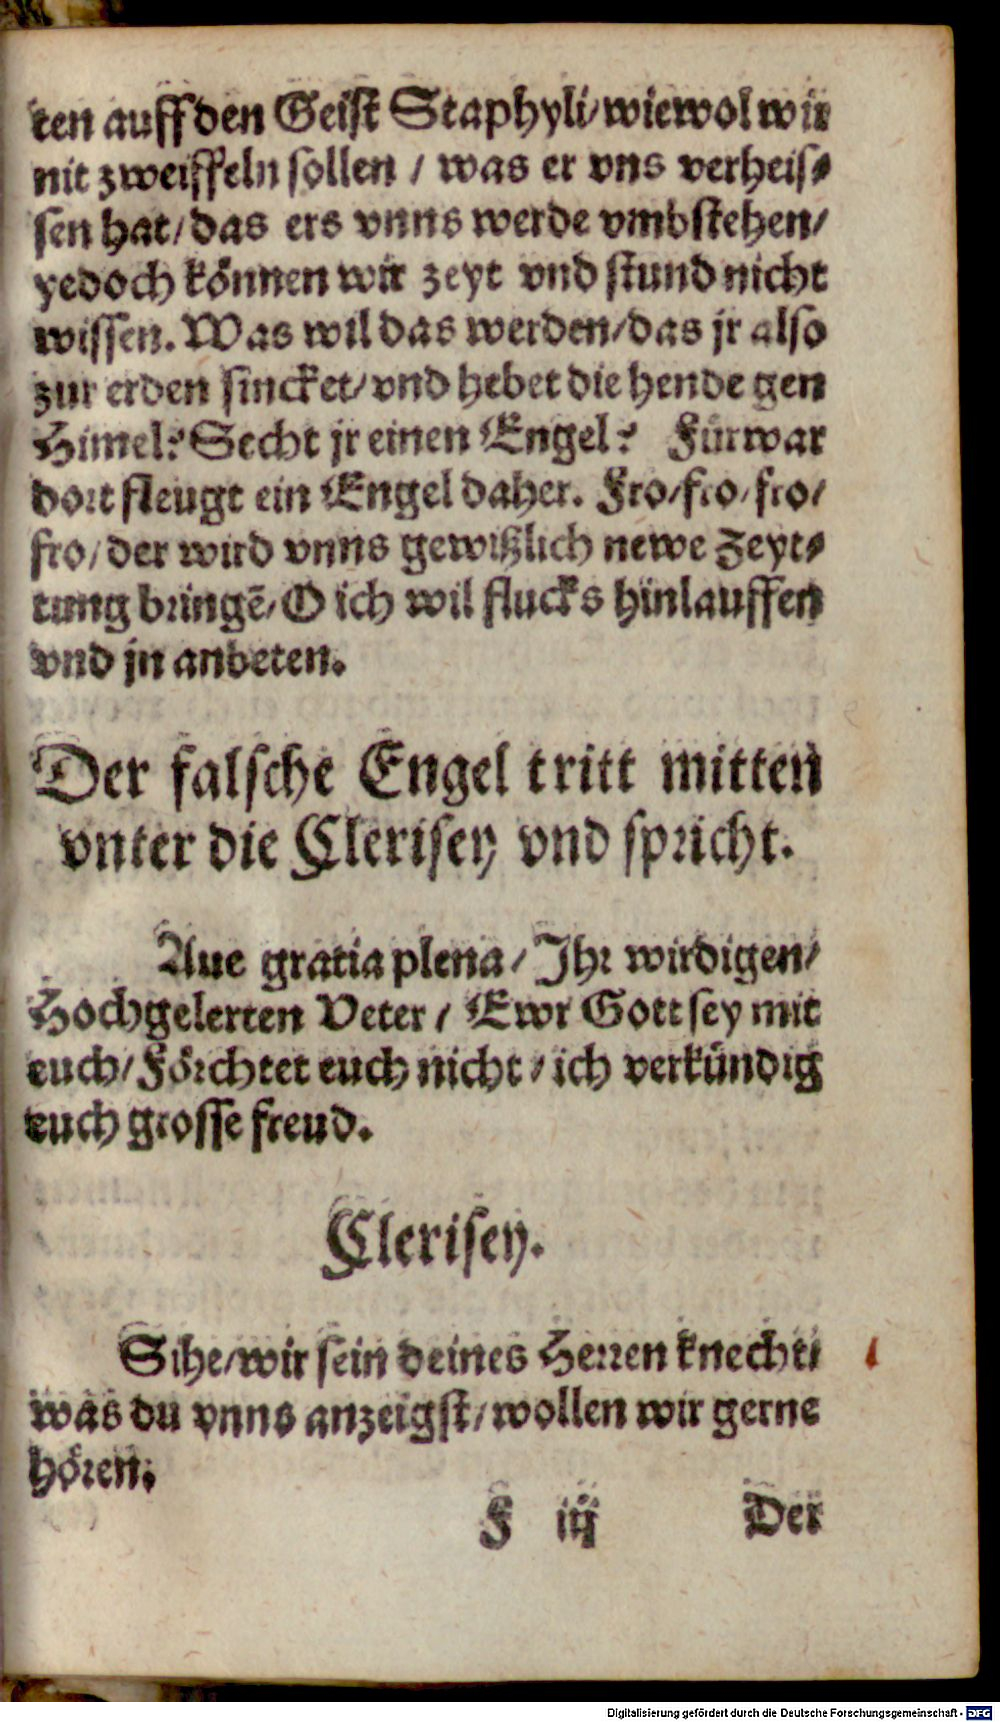 ten auff den Geist Staphyli/ wiewol wir
nit zweiffeln sollen / was er vns verheis-
sen hat/ das ers vnns werde vmbstehen/
yedoch können wir zeyt vnd stund nicht
wissen. Was wil das werden/ das jr also
zur erden sincket/ vnd hebet die hende gen
Himel? Secht jr einen Engel? Fürwar
dort fleugt ein Engel daher. Fro/ fro/ fro/
fro/ der wird vnns gewißlich newe Zeyt-
tung bringẽ/ O ich wil flucks hinlauffen
vnd jn anbeten.
Der falsche Engel tritt mitten
vnter die Clerisey vnd spricht.
Aue gratia plena/ Ihr wirdigen/
Hochgelerten Veter / Ewr Gott sey mit
euch/ Förchtet euch nicht / ich verkündig
euch grosse freud.
Clerisey.
Sihe/ wir sein deines Herren knecht/
was du vnns anzeigst/ wollen wir gerne
hören.
F iij Der
Digitalisierung gefördert durch die Deutsche Forschungsgemeinschaft - DFG